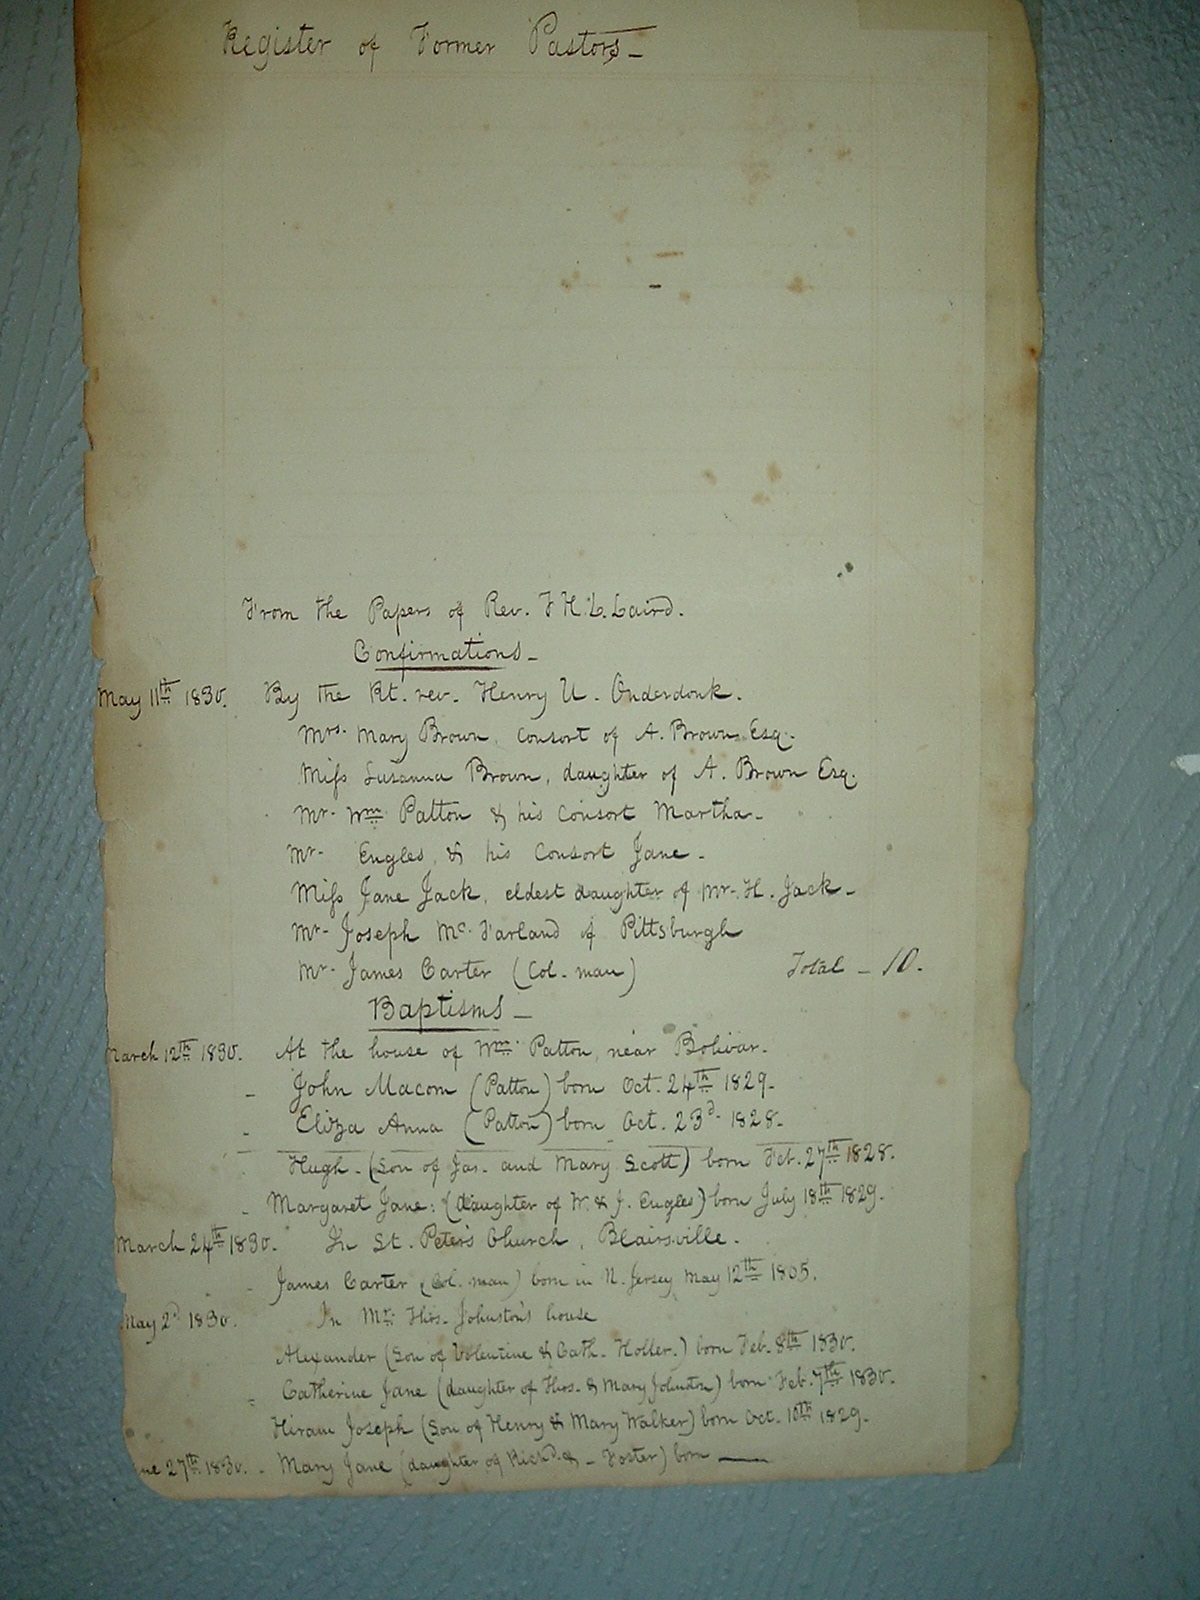 Register of Former Pastors -
From the Papers of Rev. F H. L. Laird.
Confirmations -
May 11th 1830. By the Rt. rev. Henry U. Onderdonk.
Mrs. Mary Brown, Consort of A. Brown Esq.
Miſs Susanna Brown, daughter of A. Brown Esq.
Mr. Wm Patton & his Consort Martha -
Mr. Engles, & his Consort Jane -
Miſs Jane Jack, eldest daughter of Mr. H. Jack -
Mr. Joseph Mc. Farland of Pittsburgh
Mr. James Carter (Col. man) Total - 10.
Baptisms -
March 12th 1830. At the house of Wm. Patton, near Bolivar.
- John Macom (Patton) born Oct. 24th 1829.
- Eliza Anna (Patton) born Oct. 23d. 1828.
Hugh - (Son of Jas. and Mary Scott) born Feb. 27th 1828.
- Margaret Jane: (daughter of W. & J. Engles) born July 18th 1829.
March 24th 1830. In St. Peter's Church, Blairsville.
- James Carter (Col. man) born in N. Jersey May 12th 1805.
May 2d 1830. In Mr. Thos. Johnston's house
Alexander (Son of Valentine & Cath. Holler.) born Feb. 8th 1830.
- Catherine Jane (daughter of Thos. & Mary Johnston) born Feb. 7th 1830.
Hiram Joseph (Son of Henry & Mary Walker) born Oct. 10th 1829.
ne 27th 1830. - Mary Jane (daughter of Rich'd. & - Foster) born —